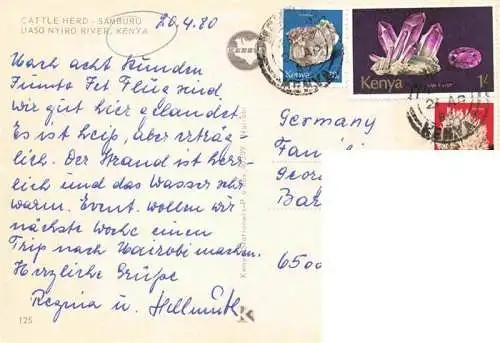 CATTLE HERD - SAMBURU
UASO NYIRO RIVER, KENYA
20.4.80
Nach acht Stunden
Jumbo Jet Flug sind
wir gut hier gelandet.
Es ist heiß, aber erträg-
lich. Der Strand ist herr-
lich und das Wasser sehr
warm. Event. wollen wir
nächste Woche einen
Trip nach Nairobi machen.
Herzliche Grüße
Regina u. Hellmuth
125
Kenya
Kenya 1/-
Germany
Fam
Geor
Bar
6500